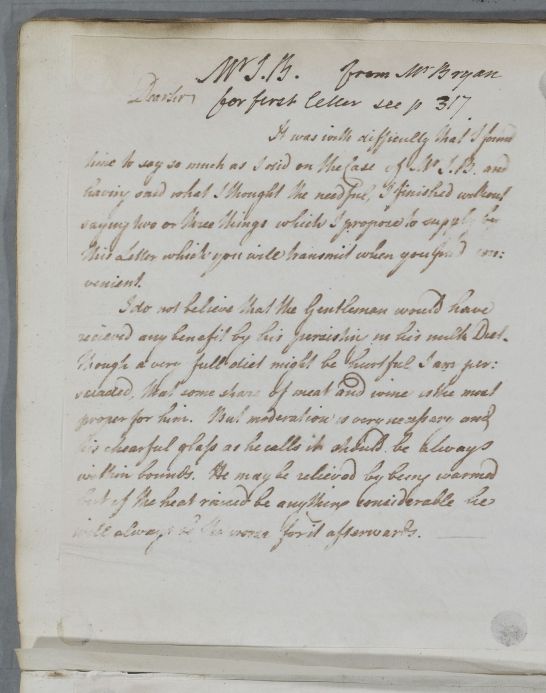 Mr J. B. from Mr Bryan
Dear Sir
for first letter see p 317
It was with difficulty that I found
time to say so much as I did on the Case of Mr J. B. and
having said what I thought the needful, I finished without
saying two or three things which I propose to supply by
this Letter which you will transmit when you find con:
venient.
I do not believe that the Gentleman would have
recieved any benefit by his persisting in his milk Diet.
Though a very full diet might be hurtful I am per:
suaded, that some share of meat and wine is the most
proper for him. But moderation is very necessary and
his chearful glass as he calls it should be always
within bounds. He may be relieved by being warmed
but if the heat raised be any thing considerable he
will always be the worse for it afterwards.